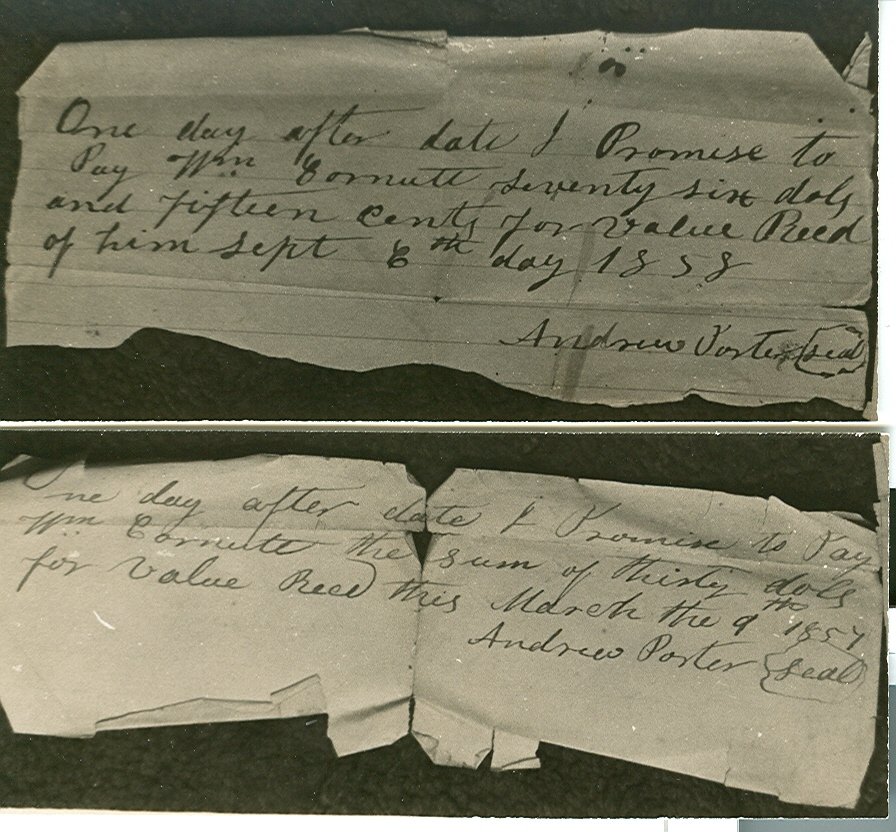 One day after date I Promise to
Pay Wm Cornutt seventy six dols
and fifteen cents for value Recd
of him Sept 6th day 1858
Andrew Porter (seal)
One day after date I Promise to Pay
Wm Cornutt the sum of thirty dols
for value Recd this March the 9th 1857
Andrew Porter (seal)